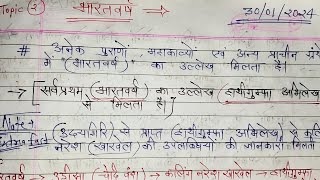 Topic (2) भारतवर्ष 30/01/2024
# अनेक पुराणों महाकाव्यों एवं अन्य प्राचीन ग्रंथ
में "(भारतवर्ष)" का उल्लेख मिलता है।
→ [सर्वप्रथम (भारतवर्ष) का उल्लेख (हाथीगुम्फा अभिलेख)
से मिलता है।]
Note → (उदयगिरि) से प्राप्त (हाथीगुम्फा अभिलेख) के
नरेश (खारवेल) की उपलब्धियों की जानकारी मिलती
→ उड़ीसा → (चेदि वंश) → कलिंग नरेश खारवेल → हाथीगुम्फा